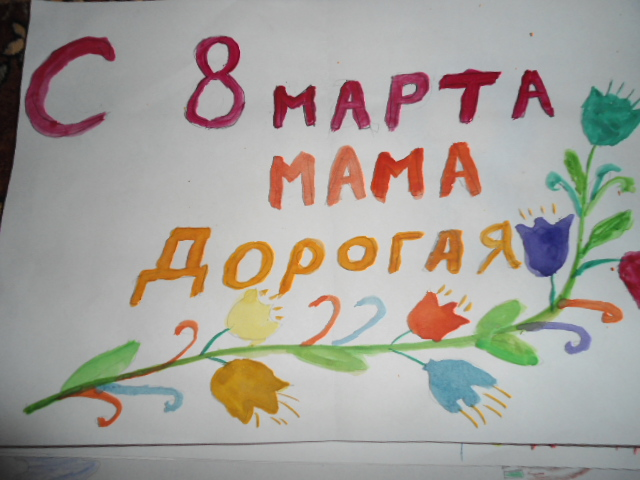 С 8 МАРТА
МАМА
ДОРОГАЯ